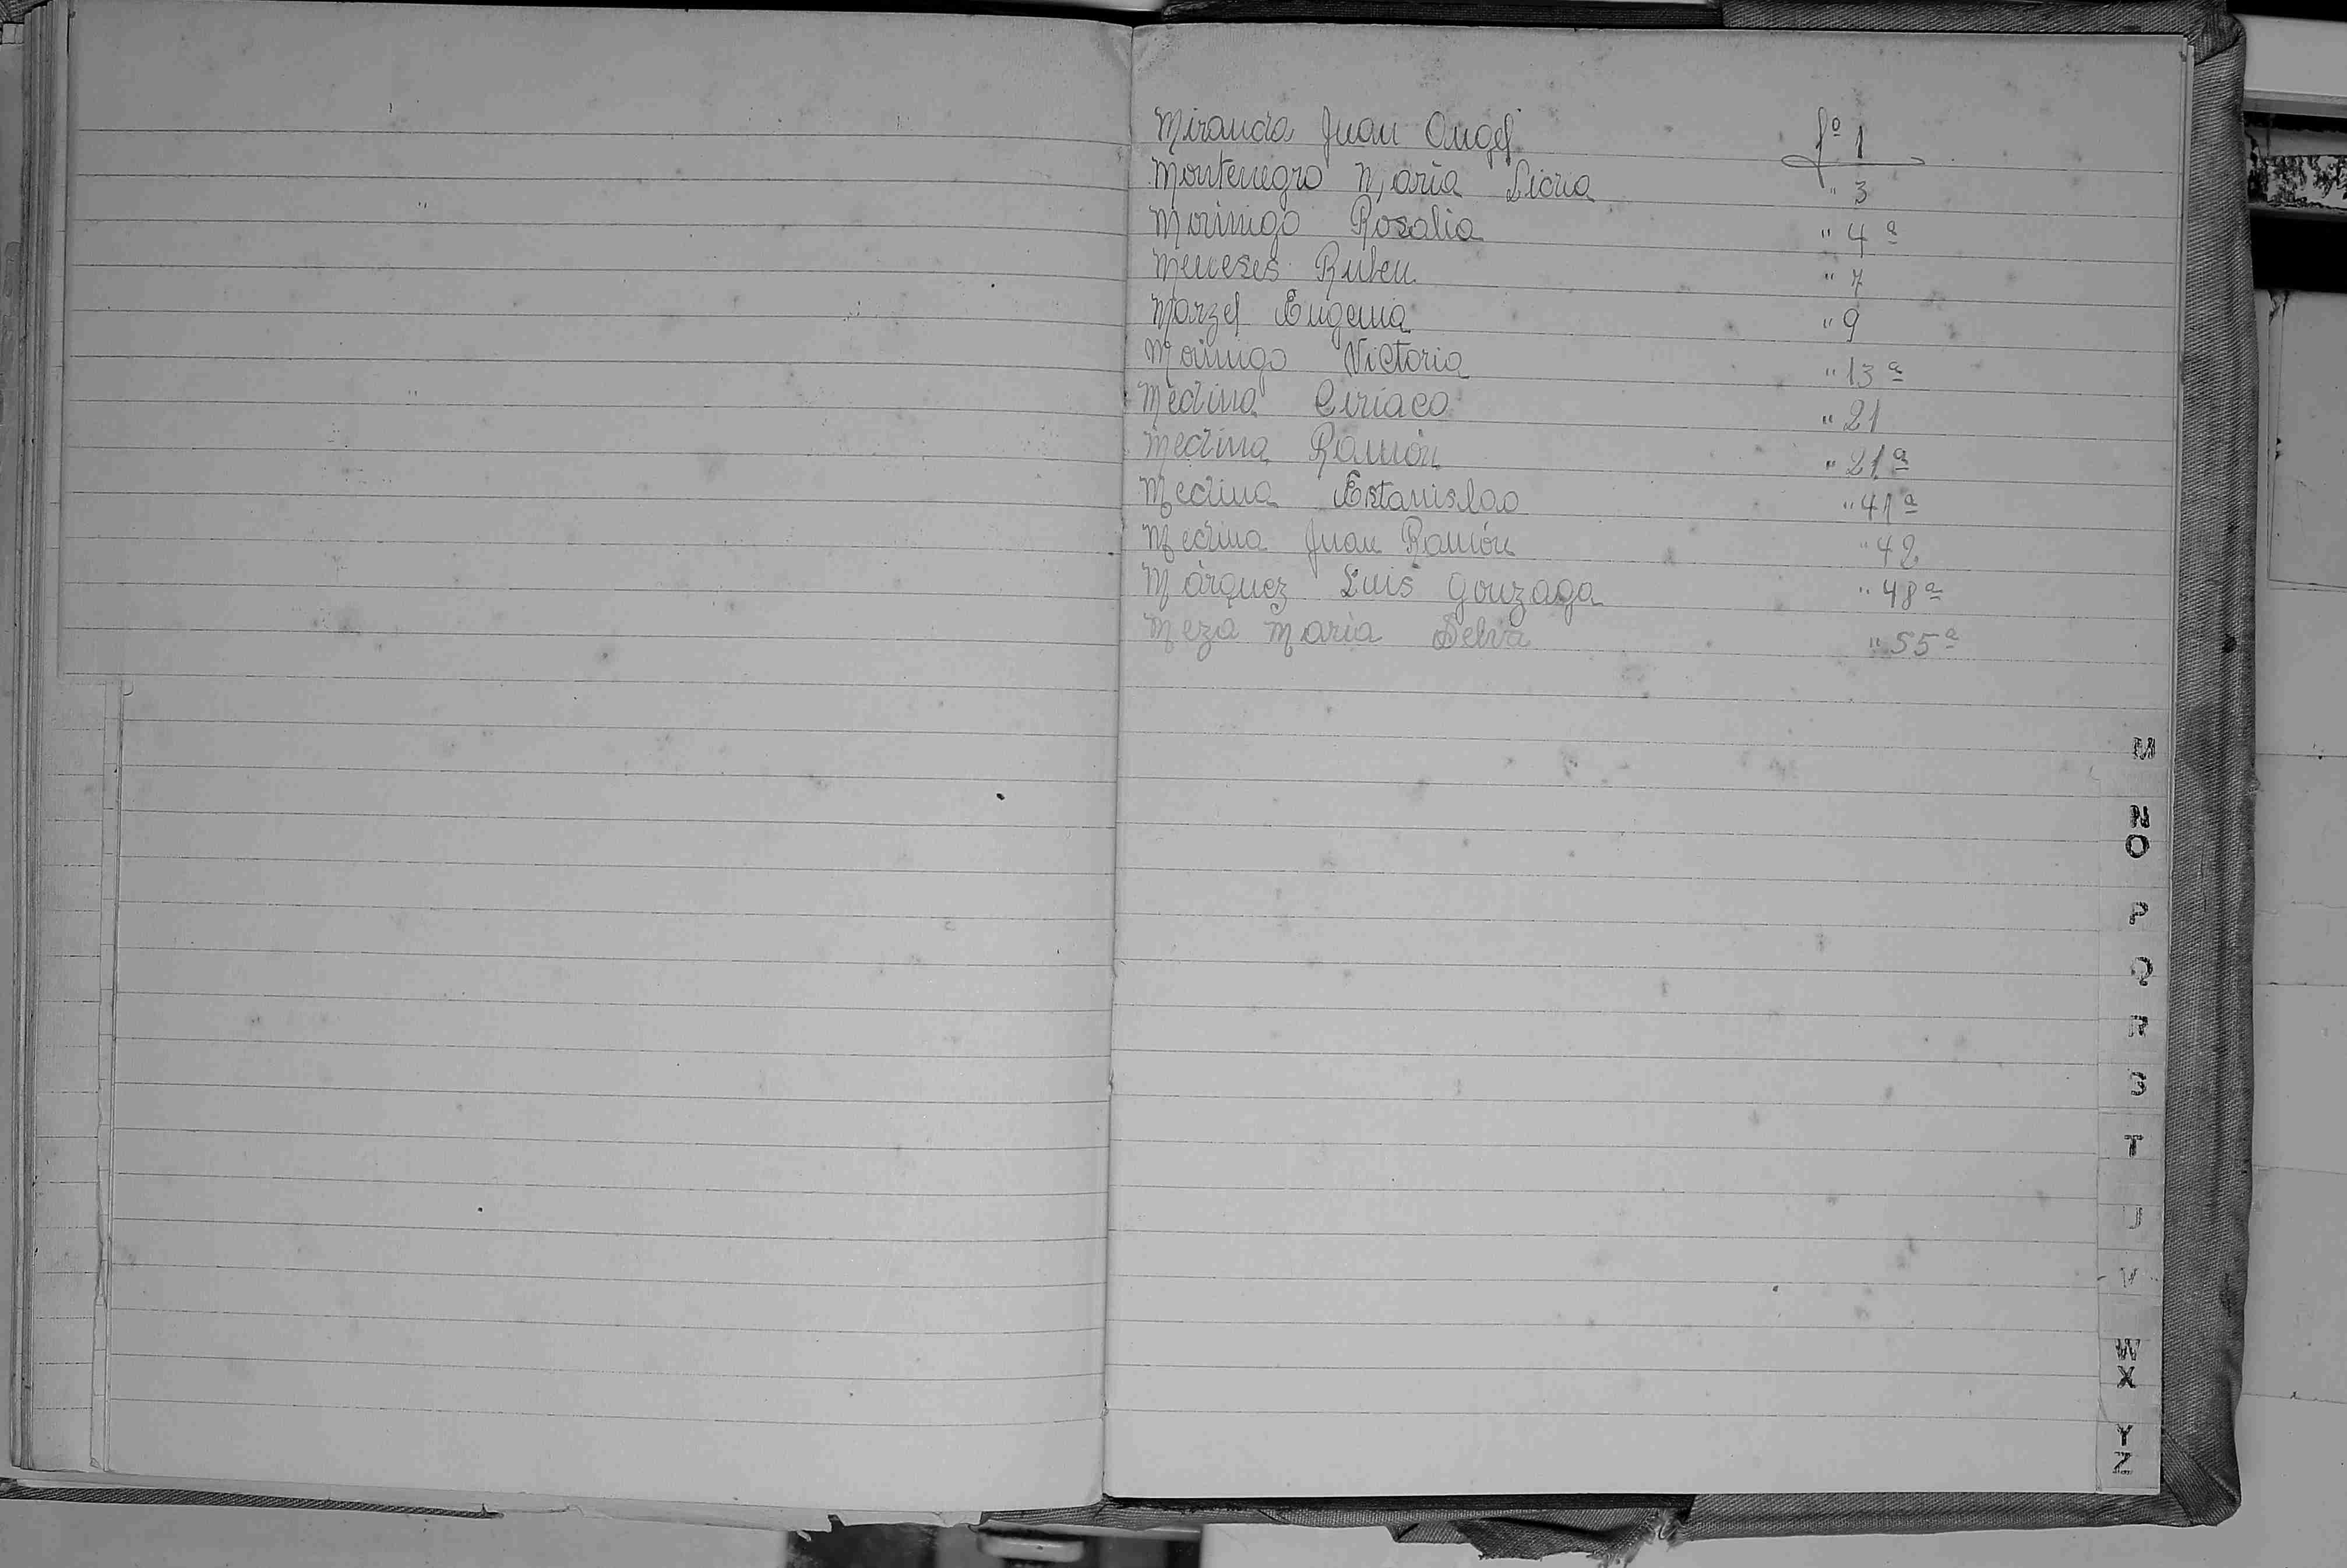 Miranda Juan Angel fº 1
Montenegro Maria Licia " 3
Morinigo Rosalia " 4ª
Meneses Ruben " 7
Marzel Eugenia " 9
Morinigo Victoria " 13ª
Medina Ciriaco " 21
Medina Ramón " 21ª
Medina Estanislao " 41ª
Medina Juan Ramón " 42
Márquez Luis Gonzaga " 48ª
Meza Maria Selva " 55ª
M
N
O
P
Q
R
S
T
U
V
W
X
Y
Z